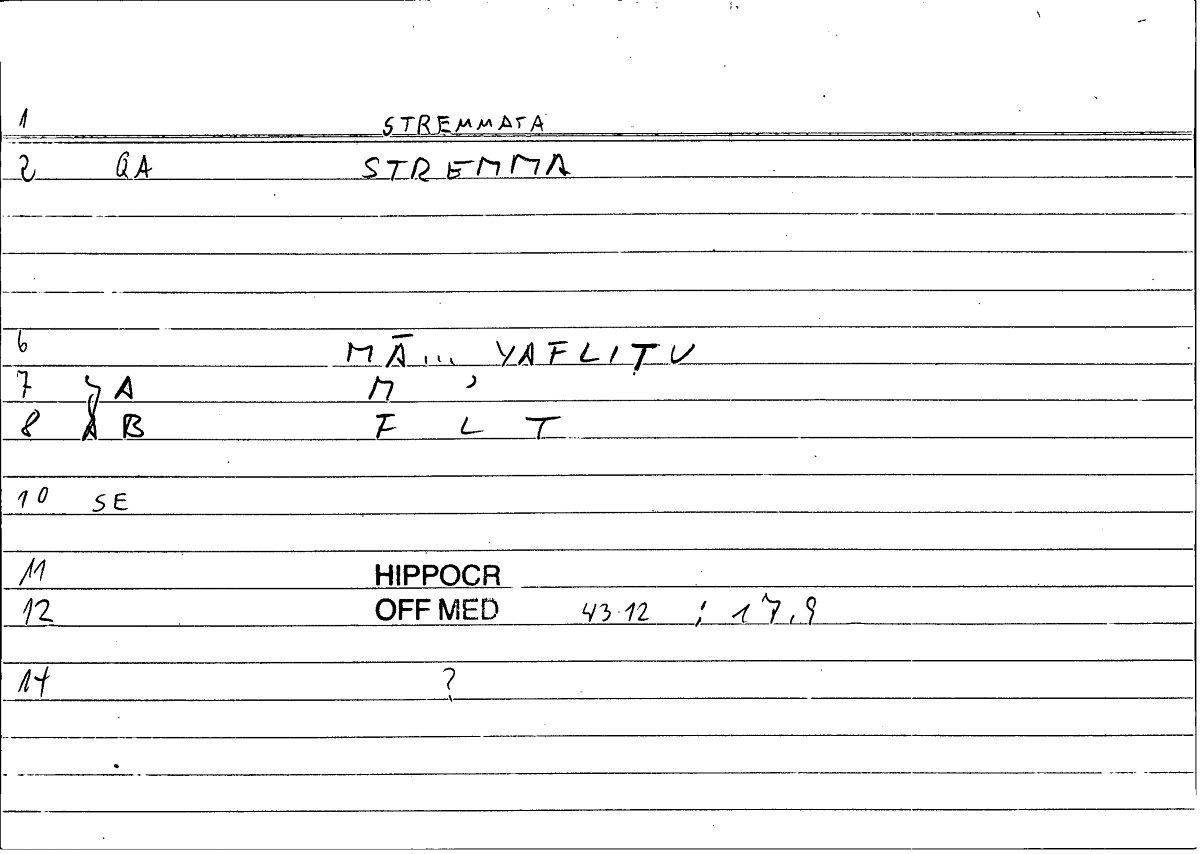 1 STREMMATA
2 QA STREMMA
6 MĀ... YAFLIṬU
7 A M ʾ
8 B F L T
10 SE
11 HIPPOCR
12 OFF MED 43.12 ; 17.9
14 ?